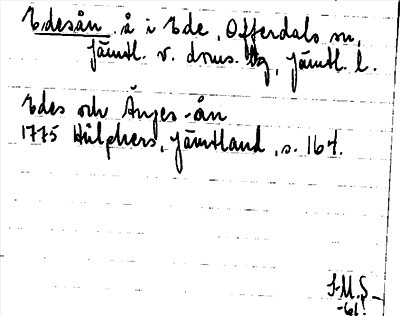 Edesån, å i Ede, Offerdals sn,
Jämtl. v. doms. , Jämtl. l.
Edes och Änges-ån
1775 Hülphers, Jämtland, s. 164.
J.M.S.
-61.